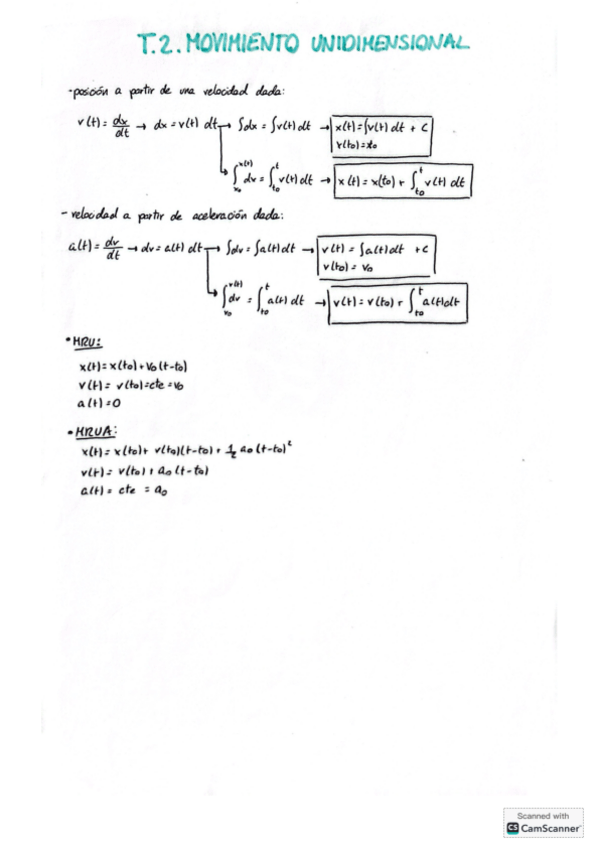 T.2. MOVIMIENTO UNIDIMENSIONAL
- posición a partir de una velocidad dada:
v(t) = dx/dt → dx = v(t) dt → ∫dx = ∫v(t) dt → x(t) = ∫v(t) dt + C
v(to) = xo
∫_{xo}^{x(t)} dv = ∫_{to}^{t} v(t) dt → x(t) = x(to) + ∫_{to}^{t} v(t) dt
- velocidad a partir de aceleración dada:
a(t) = dv/dt → dv = a(t) dt → ∫dv = ∫a(t) dt → v(t) = ∫a(t) dt + C
v(to) = vo
∫_{vo}^{v(t)} dv = ∫_{to}^{t} a(t) dt → v(t) = v(to) + ∫_{to}^{t} a(t) dt
• MRU:
x(t) = x(to) + vo (t-to)
v(t) = v(to) = cte = vo
a(t) = 0
• MRUA:
x(t) = x(to) + v(to)(t-to) + 1/2 ao (t-to)²
v(t) = v(to) + ao (t-to)
a(t) = cte = ao
Scanned with
CS CamScanner